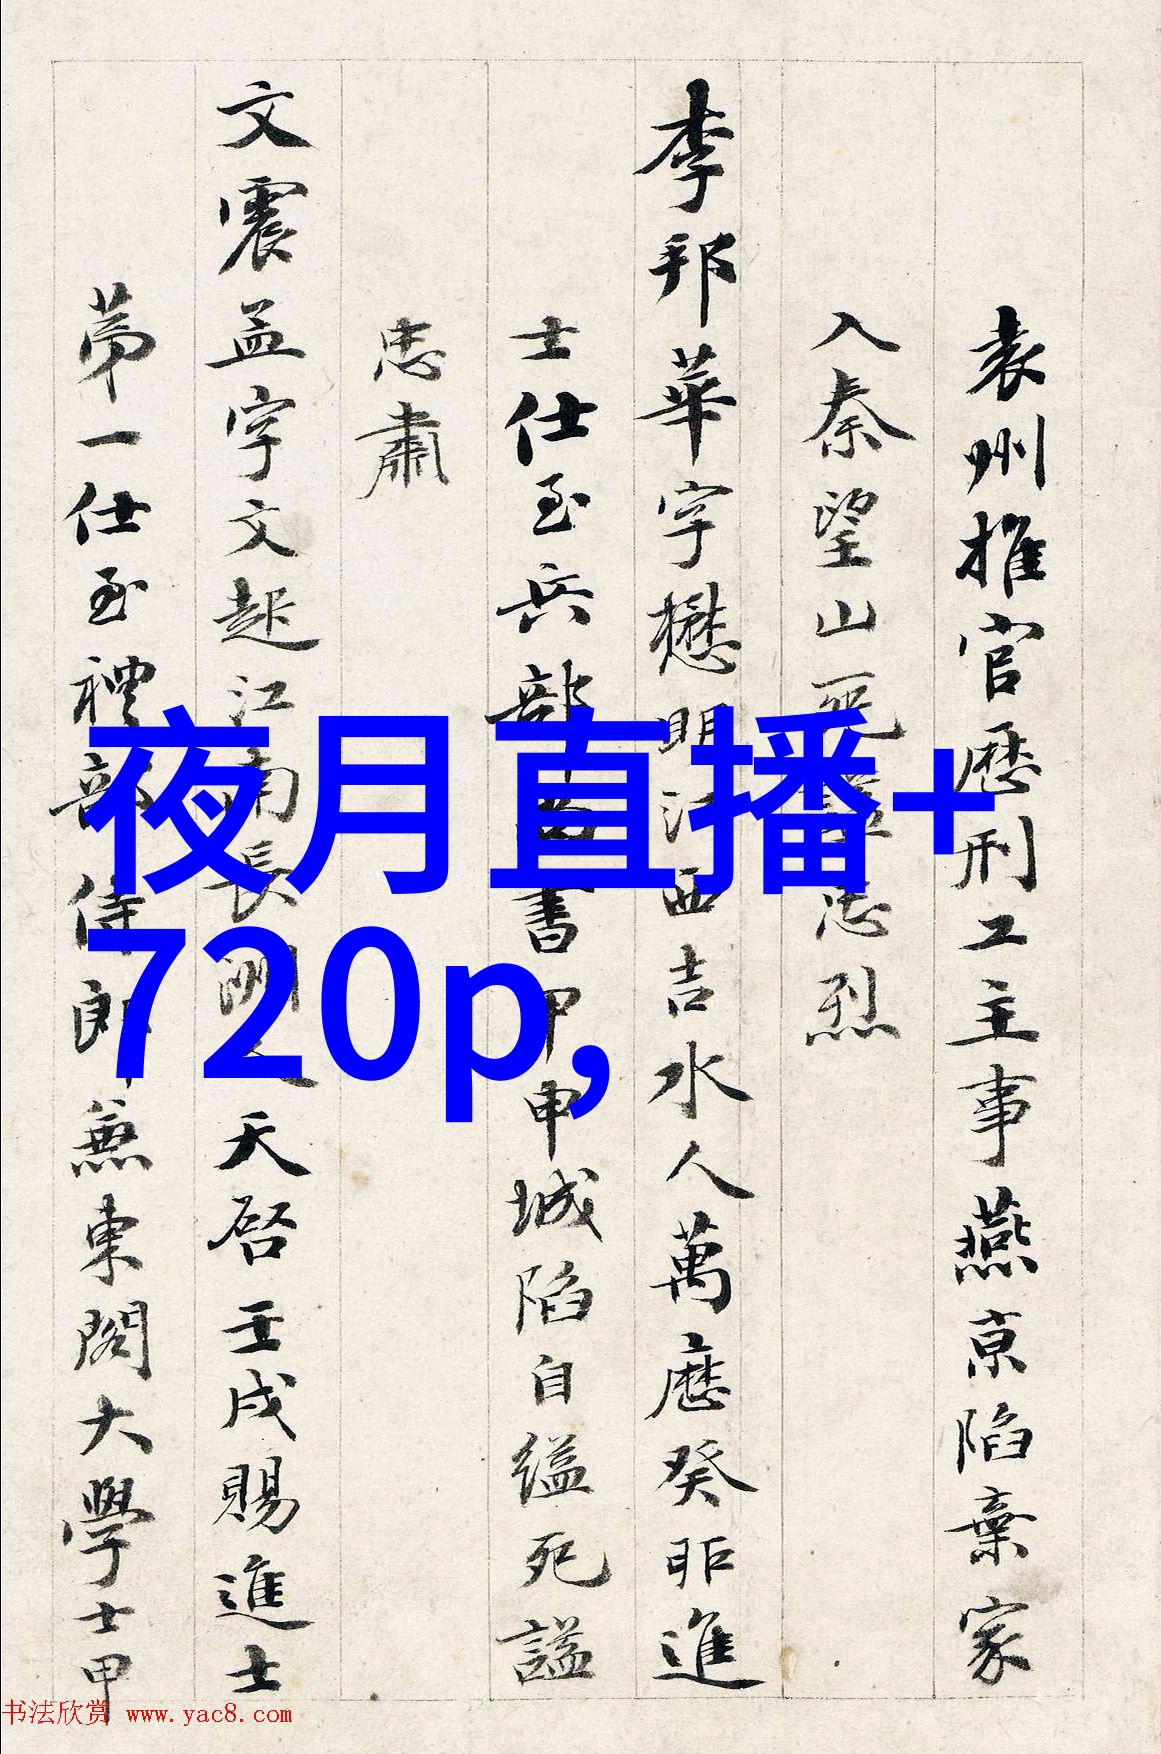 袁州推官歷刑工主事燕京陷棄家
入秦望山死諡忠烈
李邦華字懋明江西吉水人萬歷癸卯進
士仕至兵部尚書甲申城陷自縊死諡
忠肅
文震孟字文起江南長洲人天啓壬戌賜進士
第一仕至禮部侍郎兼東閣大學士甲
夜月直播+
720p,
书法欣赏 www.yac8.com